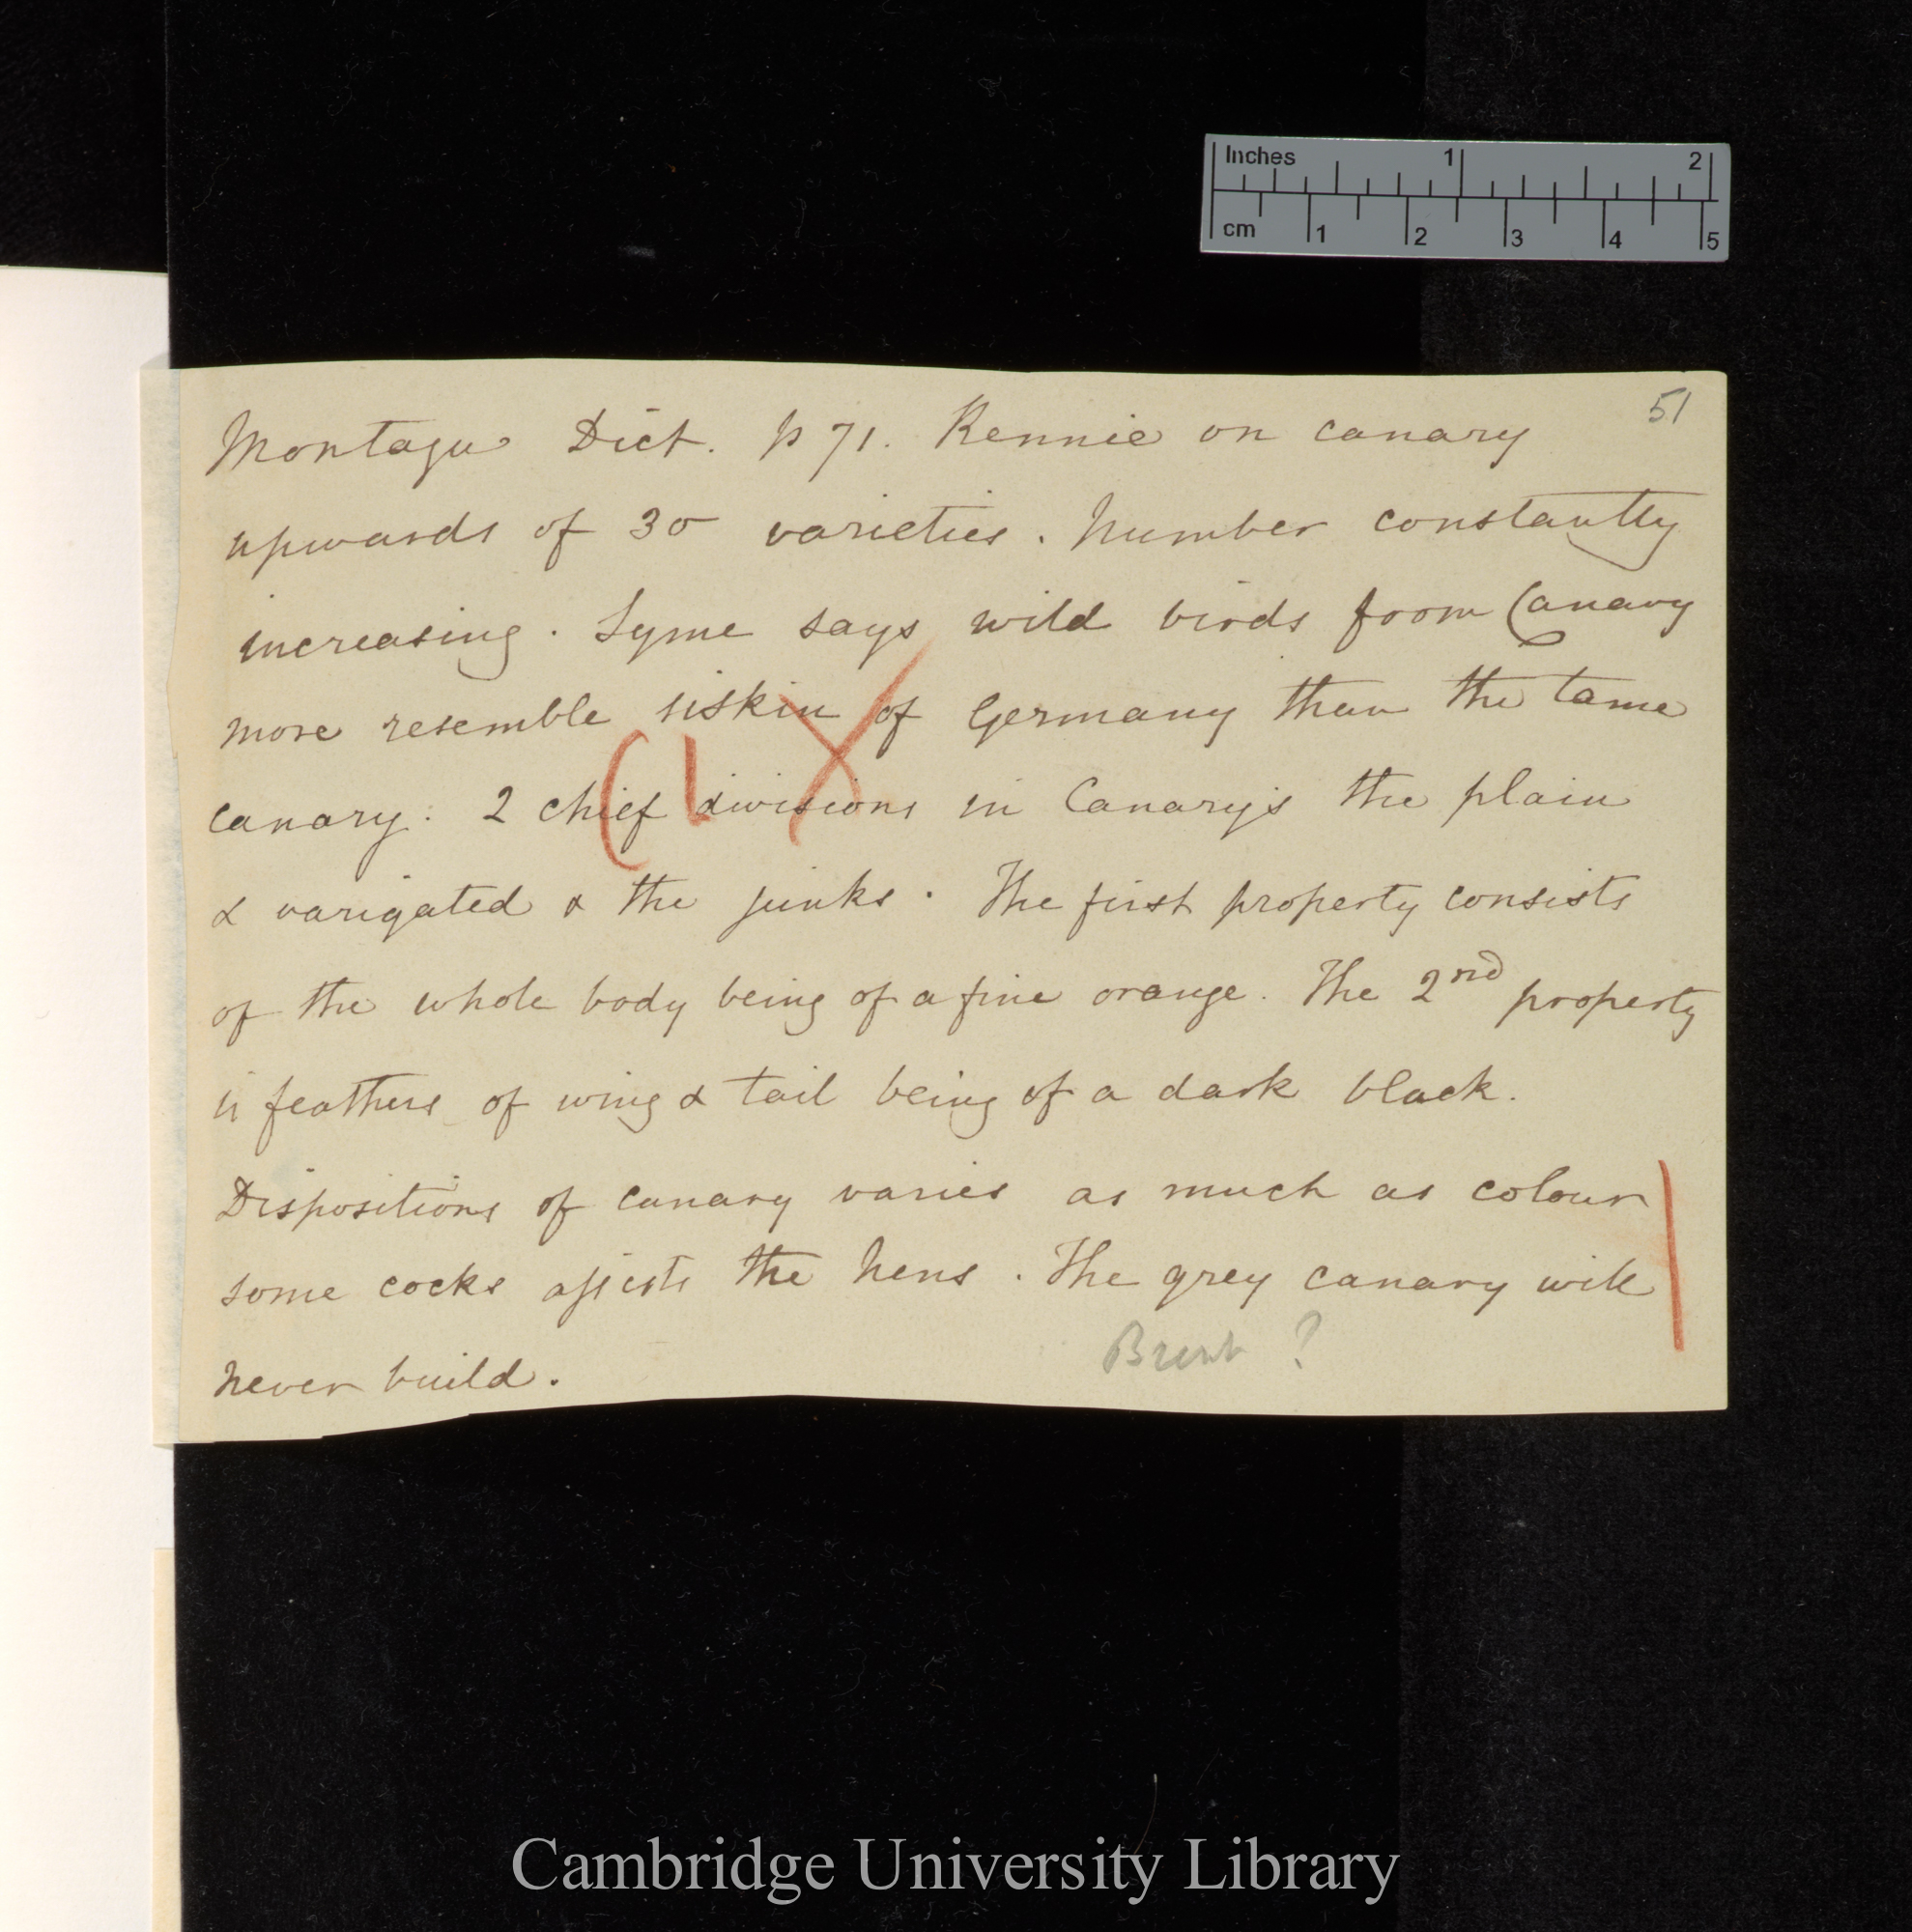 Inches 1 2
cm 1 2 3 4 5
51
Montagu Dict. p 71. Rennie on canary
upwards of 30 varieties. Number constantly
increasing. Syme says wild birds from Canary
more resemble siskin of Germany than the tame
canary: 2 chief divisions in Canary's the plain
& varigated & the junks. The first property consists
of the whole body being of a fine orange. The 2nd property
is feathers of wing & tail being of a dark black.
Dispositions of canary varies as much as colour
some cocks assists the hens. The grey canary will
never build.
Brent ?
Cambridge University Library